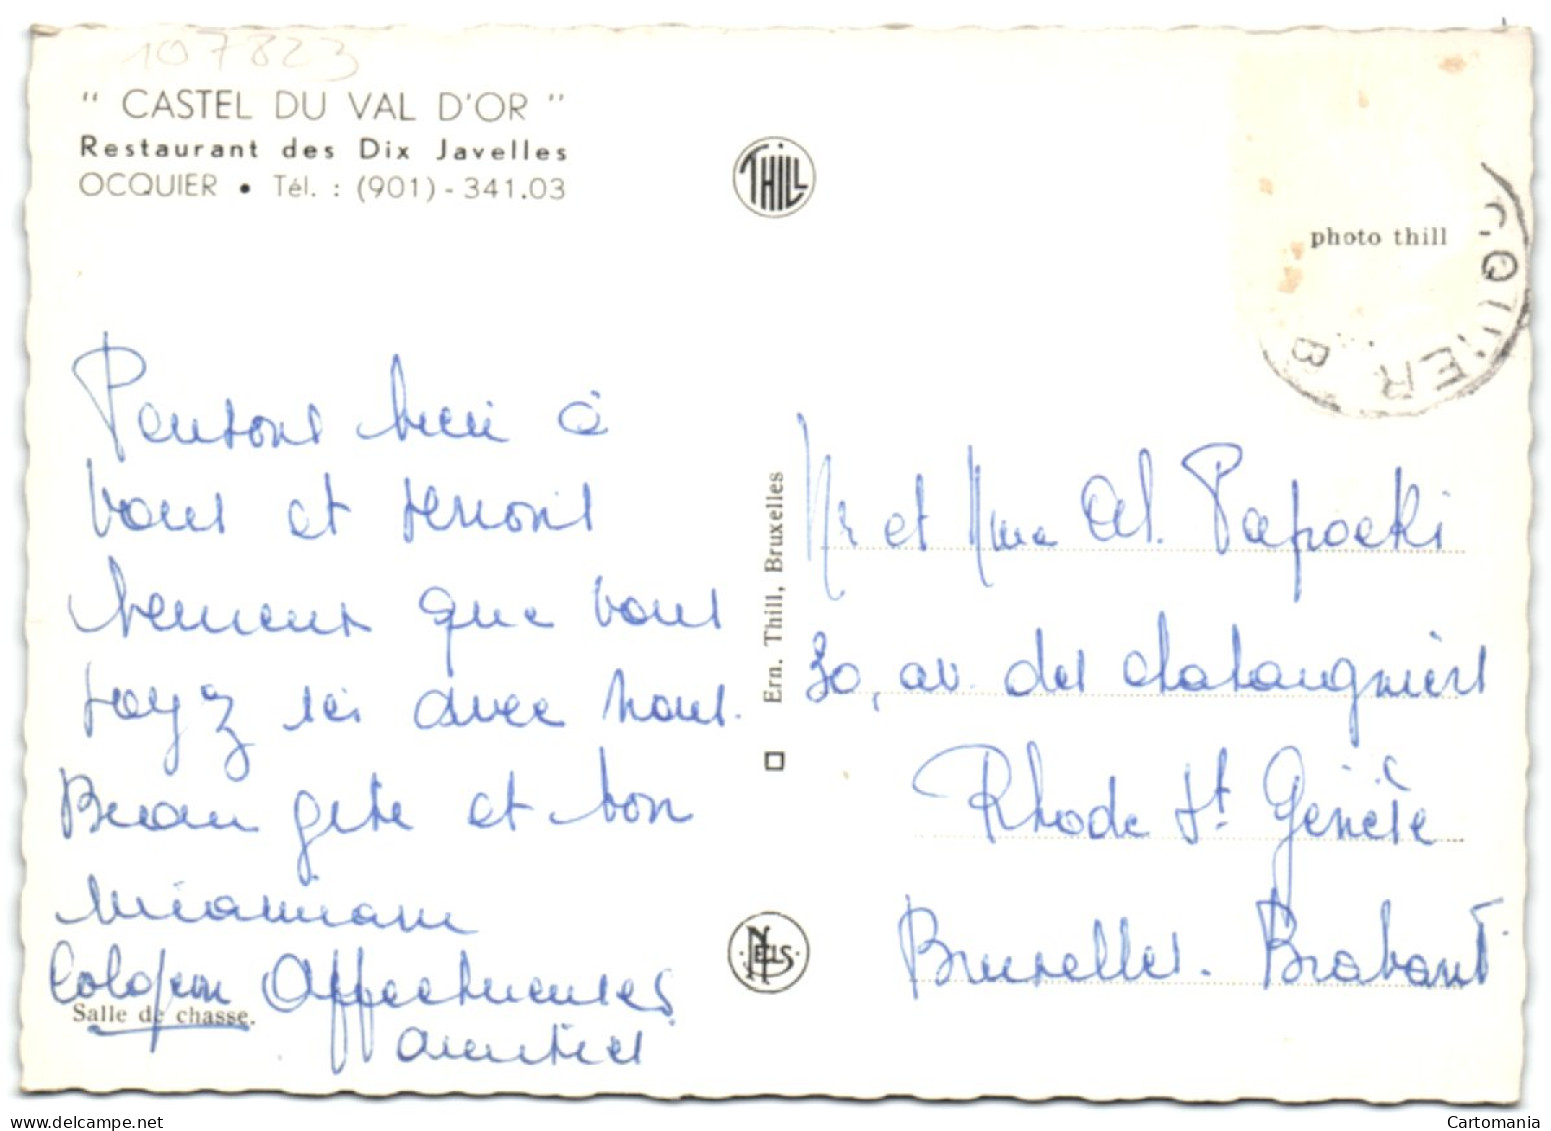 107823
" CASTEL DU VAL D'OR "
Restaurant des Dix Javelles
OCQUIER • Tél. : (901) - 341.03
THILL
photo thill
CQUIER B
Pensons bien à
vous et serions
heureux que vous
soyez ici avec nous.
Bien gite et bon
miammiam
Affectueuses
amitiés
Salle de chasse.
Ern. Thill, Bruxelles
NELS
Mr et Mme Al. Papocki
30, av. des chataigniers
Rhode St Genèse
Bruxelles. Brabant
www.delcampe.net
Cartomania